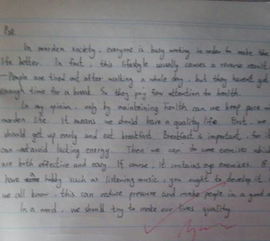 In morden society, everyone is busy working in order to make
life better. In fact, this lifestyle usually comes a reverse result.
People are tired out after working a whole day, but they haven't get
enough time for a bread. So they pay few attention to health.
In my opinion, only by maintaining health can we keep pace
morden life. It means we should have a quality life. First, we
should get up early and eat breakfast. Breakfast is important, for it
can lasting energy. Then we can do some exercises which
are both effective and easy. If course, it contains eye exercises. If
have hobby, such as listening music, you ought to develop it.
we all know, this can reduce pressure and make people in a good
In a word, we should try to make our lives quality.